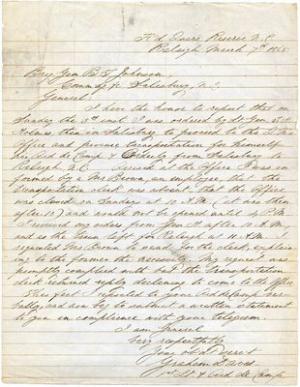 Hd Qurs Reserve N.C.
Raleigh March 7th 1865
Brig Gen B T Johnson
Comdg &c Salisbury N.C.
General.
I have the honor to report that on
Sunday the 5th inst I was ordered by Lt Gen T H
Holmes then in Salisbury to proceed to the
Office and procure transportation for himself
Aid de Camp & from Salisbury to
Raleigh N.C. I arrived at the Office & was in
formed by a Mr Brown, an employee, that the
transportation clerk was absent that the Office
was closed on Sundays at 10 A.M (it was then
after 10) and would not be opened until P.M.
I received my orders from Gen H after 10 A.M
and as the train left for Raleigh at 11 A.M. I
requested Mr Brown to send for the clerk, explain
ing to the former the necessity. My request was
promptly complied with but the transportation
clerk returned reply declining to come to the Office
These facts I reported to your
bally, and now beg to submit a written statement
to you in compliance with your telegram.
I am General
Very respectfully
Your obdt Servt
Graham Daves
1st Lt & Aid de Camp